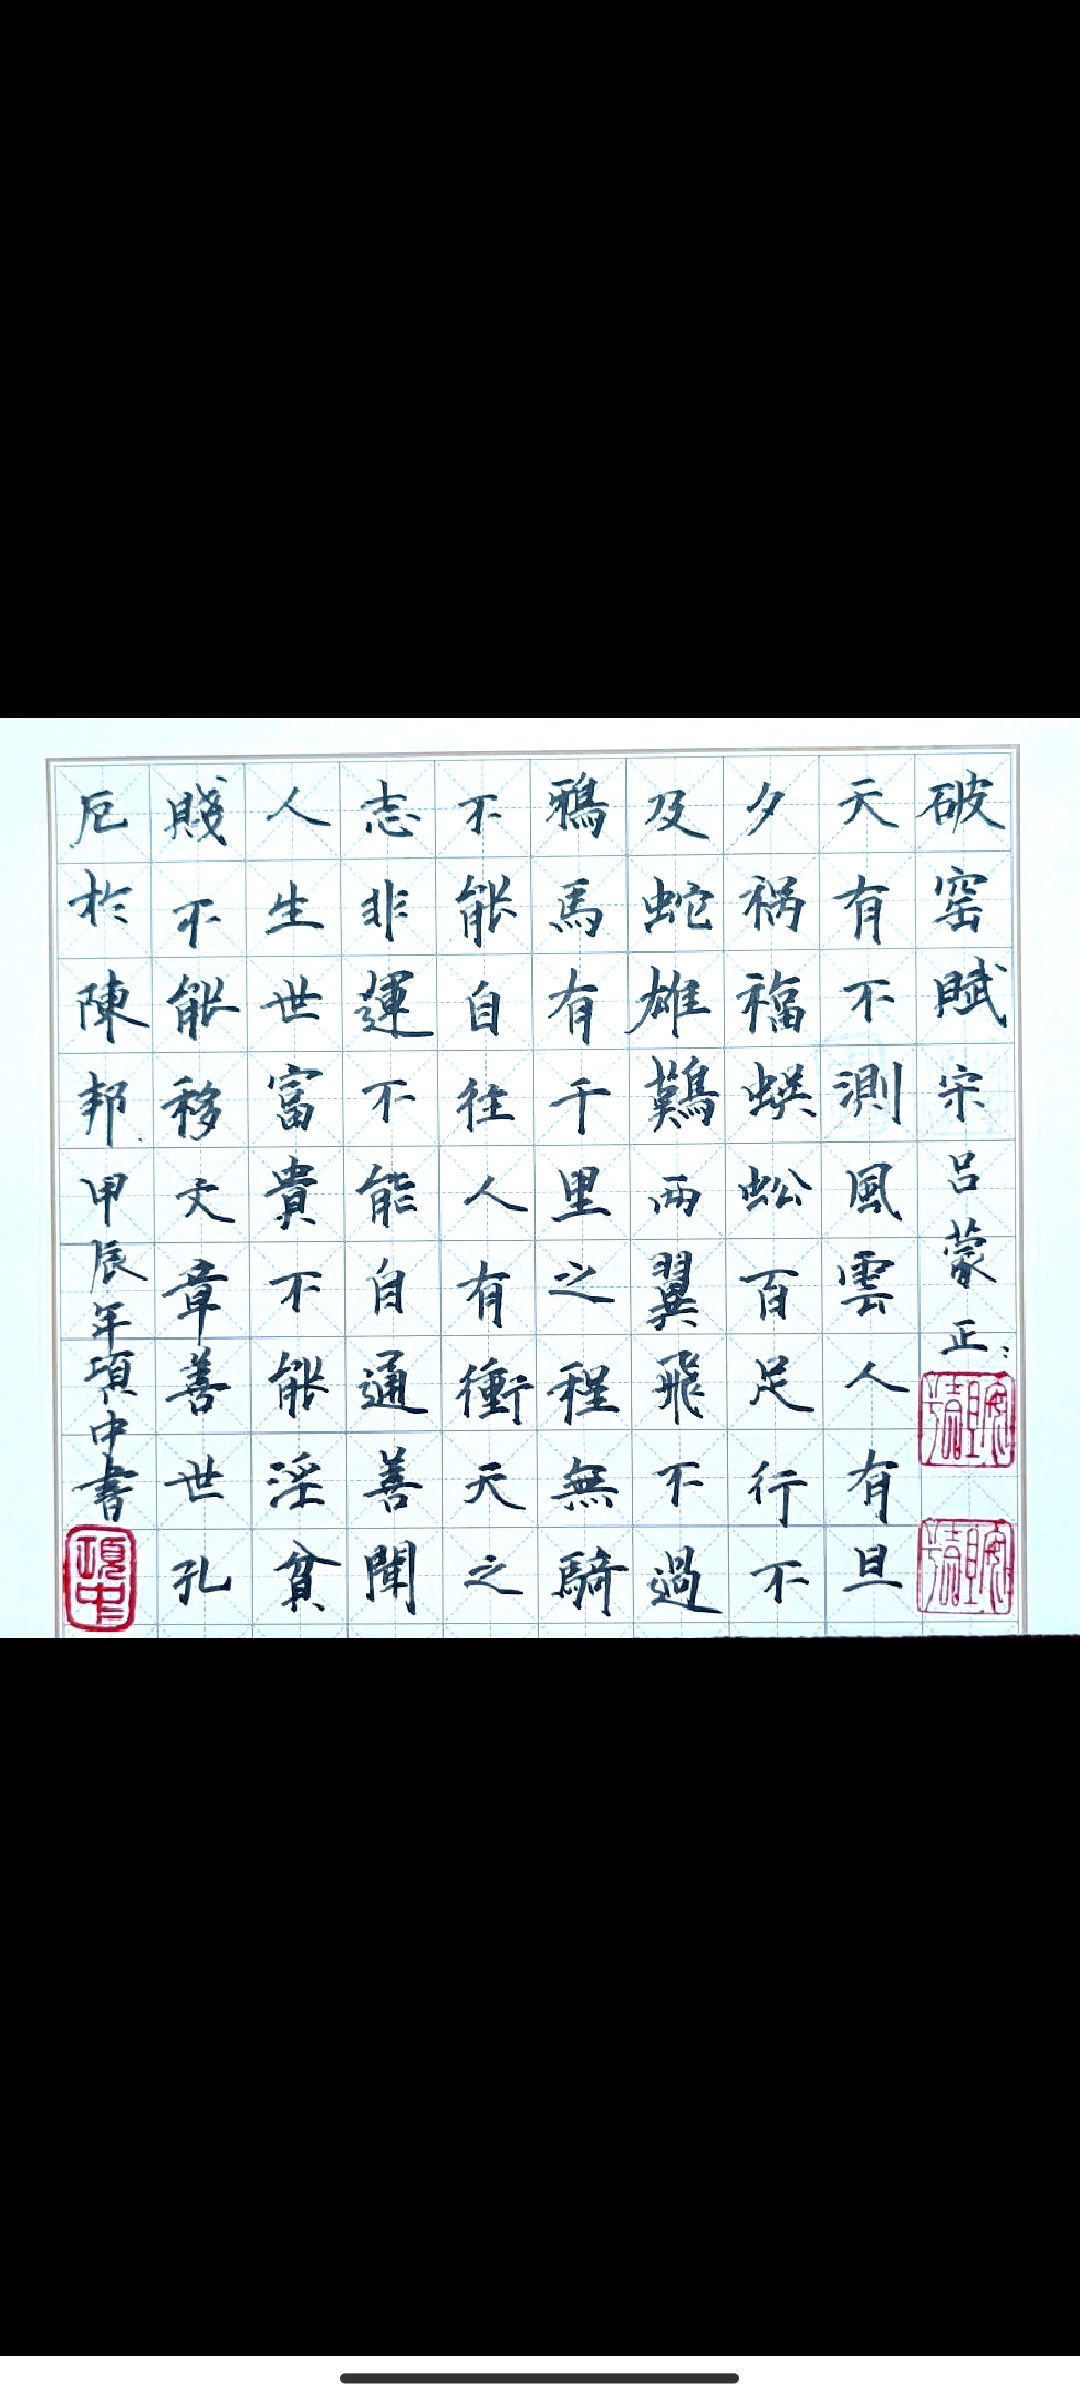 破窑賦宋吕蒙正:
天有不測風雲人有旦
夕禍福蜈蚣百足行不
及蛇雄鷄兩翼飛不過
鴉馬有千里之程無騎
不能自往人有衝天之
志非運不能自通善聞
人生世富貴不能淫貧
賤不能移文章善世孔
厄於陳邦.甲辰年項中書
項中